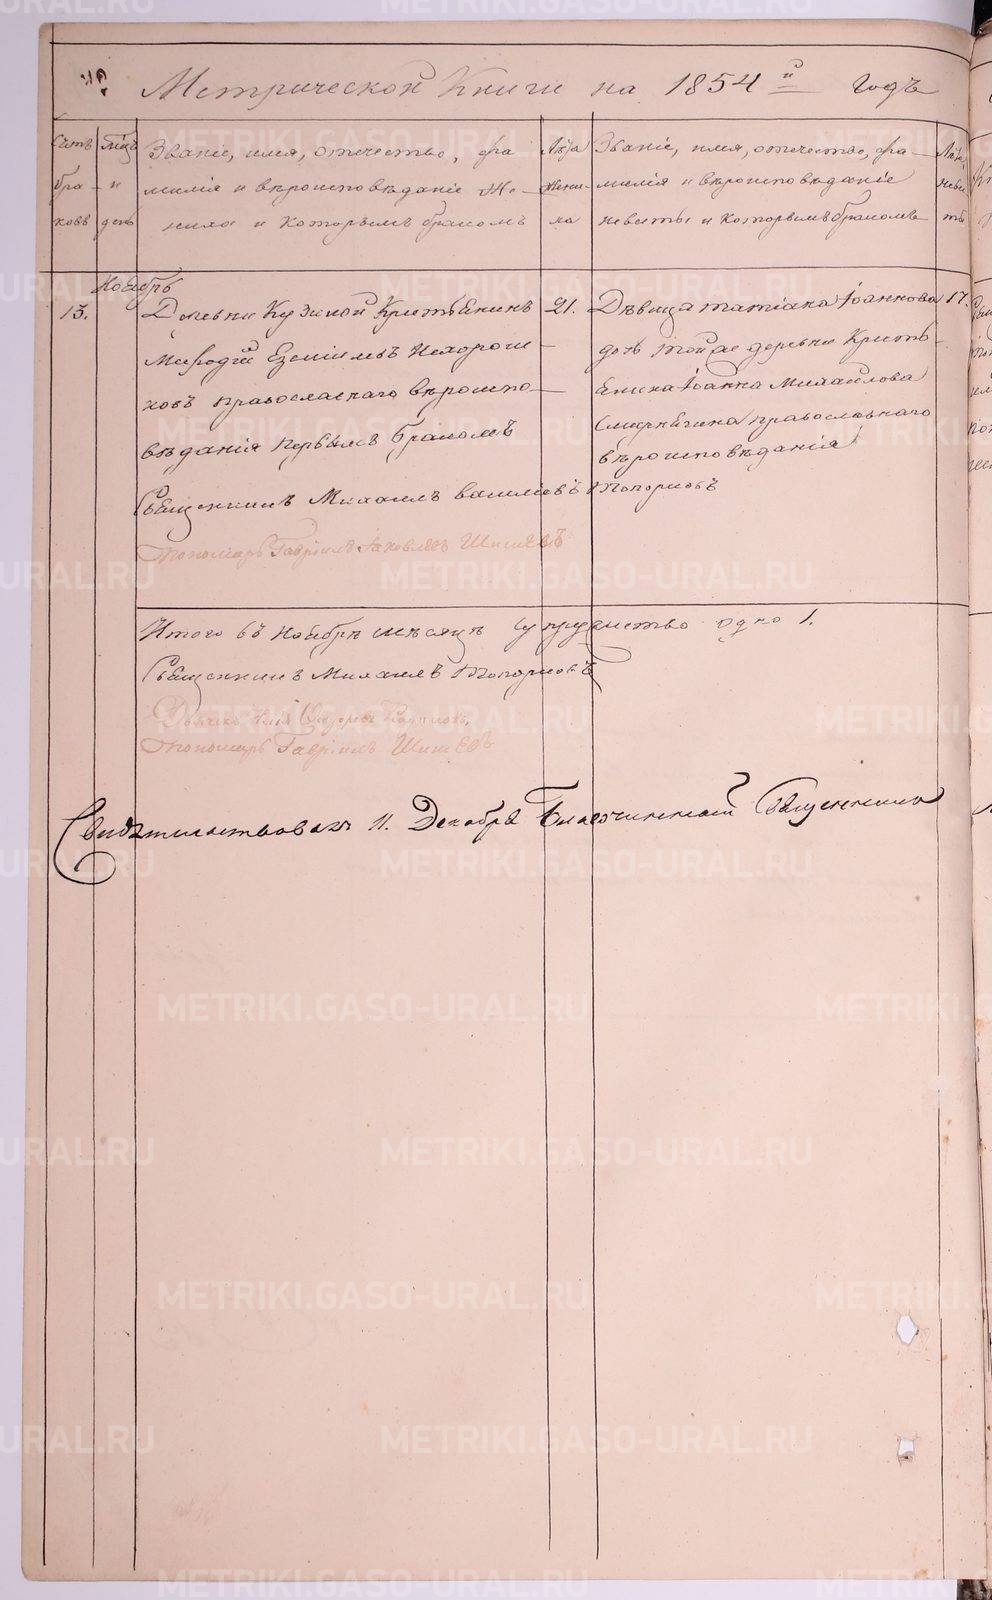 Метрической Книги на 1854й Годъ
Счетъ бра ковъ
мсцъ и день
Званіе, имя, отчество, фа
милія и вѣроисповѣданіе Же-
ниха и Которымъ бракомъ
Лѣта жени- ха
Званіе, имя, отчество, фа-
милія и вѣроисповѣданіе
невѣсты и Которымъ бракомъ
Лѣта невѣ сты
Ноябрь
13.
Деревни Кузиной Крестьянинъ
Меѳодій Нехороши-
ховъ православнаго вѣроиспо-
вѣданія первымъ бракомъ
21.
Дѣвица татіана Іоаннова
дочь той же деревни Кресть-
янина Іоанна Михайлова
православнаго
вѣроисповѣданія
17.
Священникъ Михаилъ Василіевъ Топорковъ
Пономарь Гавріилъ Іаковлевъ Шишевъ
Итого въ Ноябрѣ мѣсяцѣ супружество одно 1.
Священникъ Михаилъ Топорковъ
Дьячекъ Илія
Пономарь Гавріилъ Шишевъ
Свидѣтельствовалъ 11. Декабря Благочинный Священникъ
METRIKI.GASO-URAL.RU